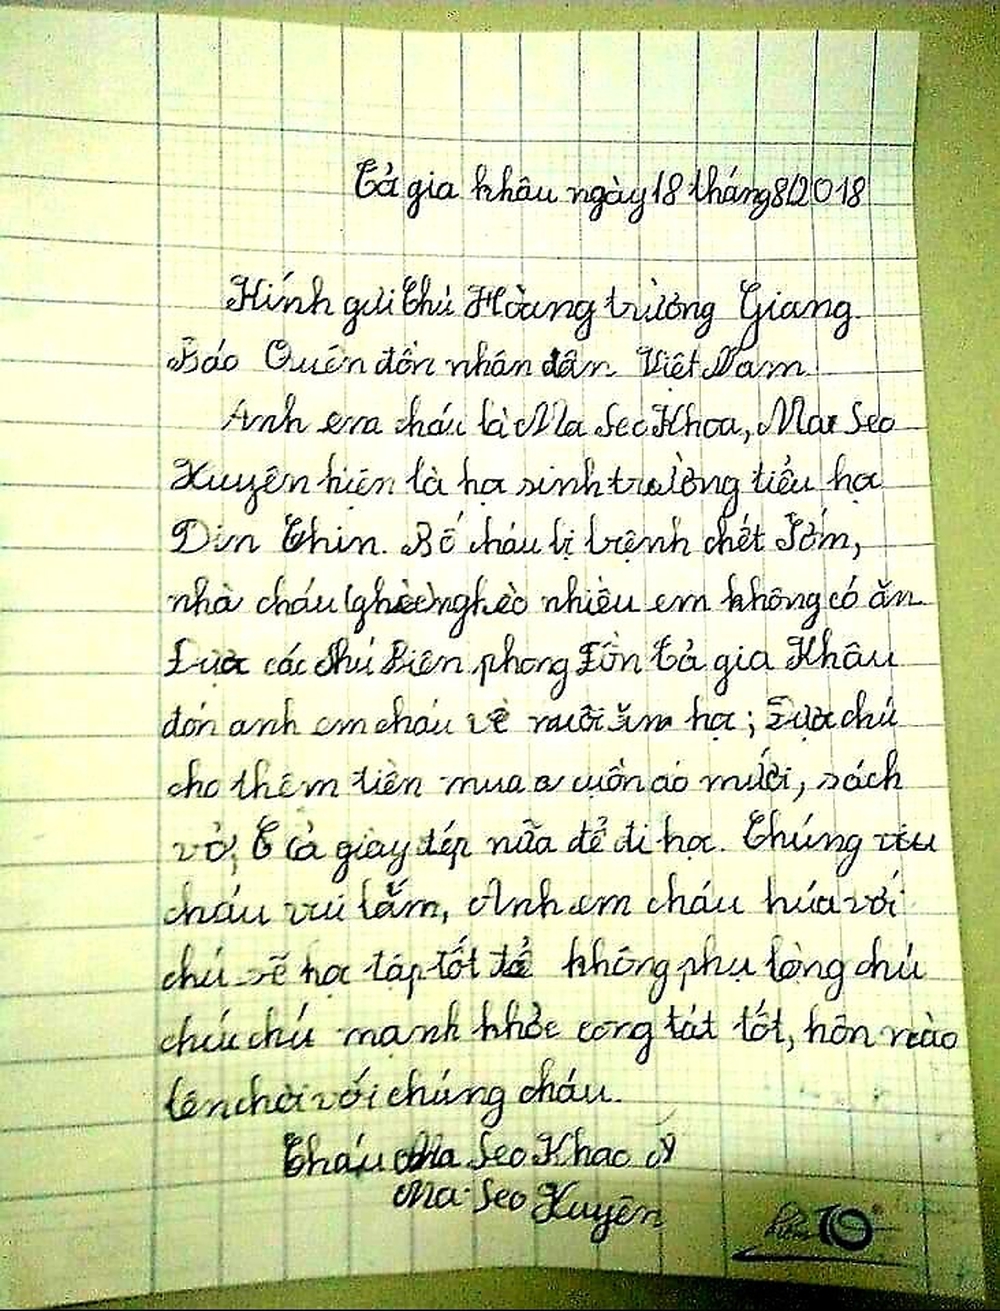 Tả gia khâu ngày 18 tháng 8/2018
Kính gửi Chú Hoàng trường Giang
Báo Quên đôn nhân dân Việt Nam
Anh em cháu là Ma Seo Khoa, Ma Seo
Xuyên hiện là họ sinh trường tiểu học
Din Chin. Bố cháu bị bệnh chết Sớm,
nhà cháu nghèo nhiều em không có ăn
Được các chú Biên phong Đồn Tả gia Khâu
đón anh em cháu về nuôi ăn học; Được chú
cho thêm tiền mua quần áo mới, sách
vở, cả giày dép nữa để đi học. Chúng
cháu vui lắm, Anh em cháu húa với
chú sẽ học tập tốt để không phụ lòng chú
chúc chú mạnh khỏe công tát tốt, hôn nào
lên chơi với chúng cháu.
Cháu Ma Seo Khao
Ma Seo Xuyên
10